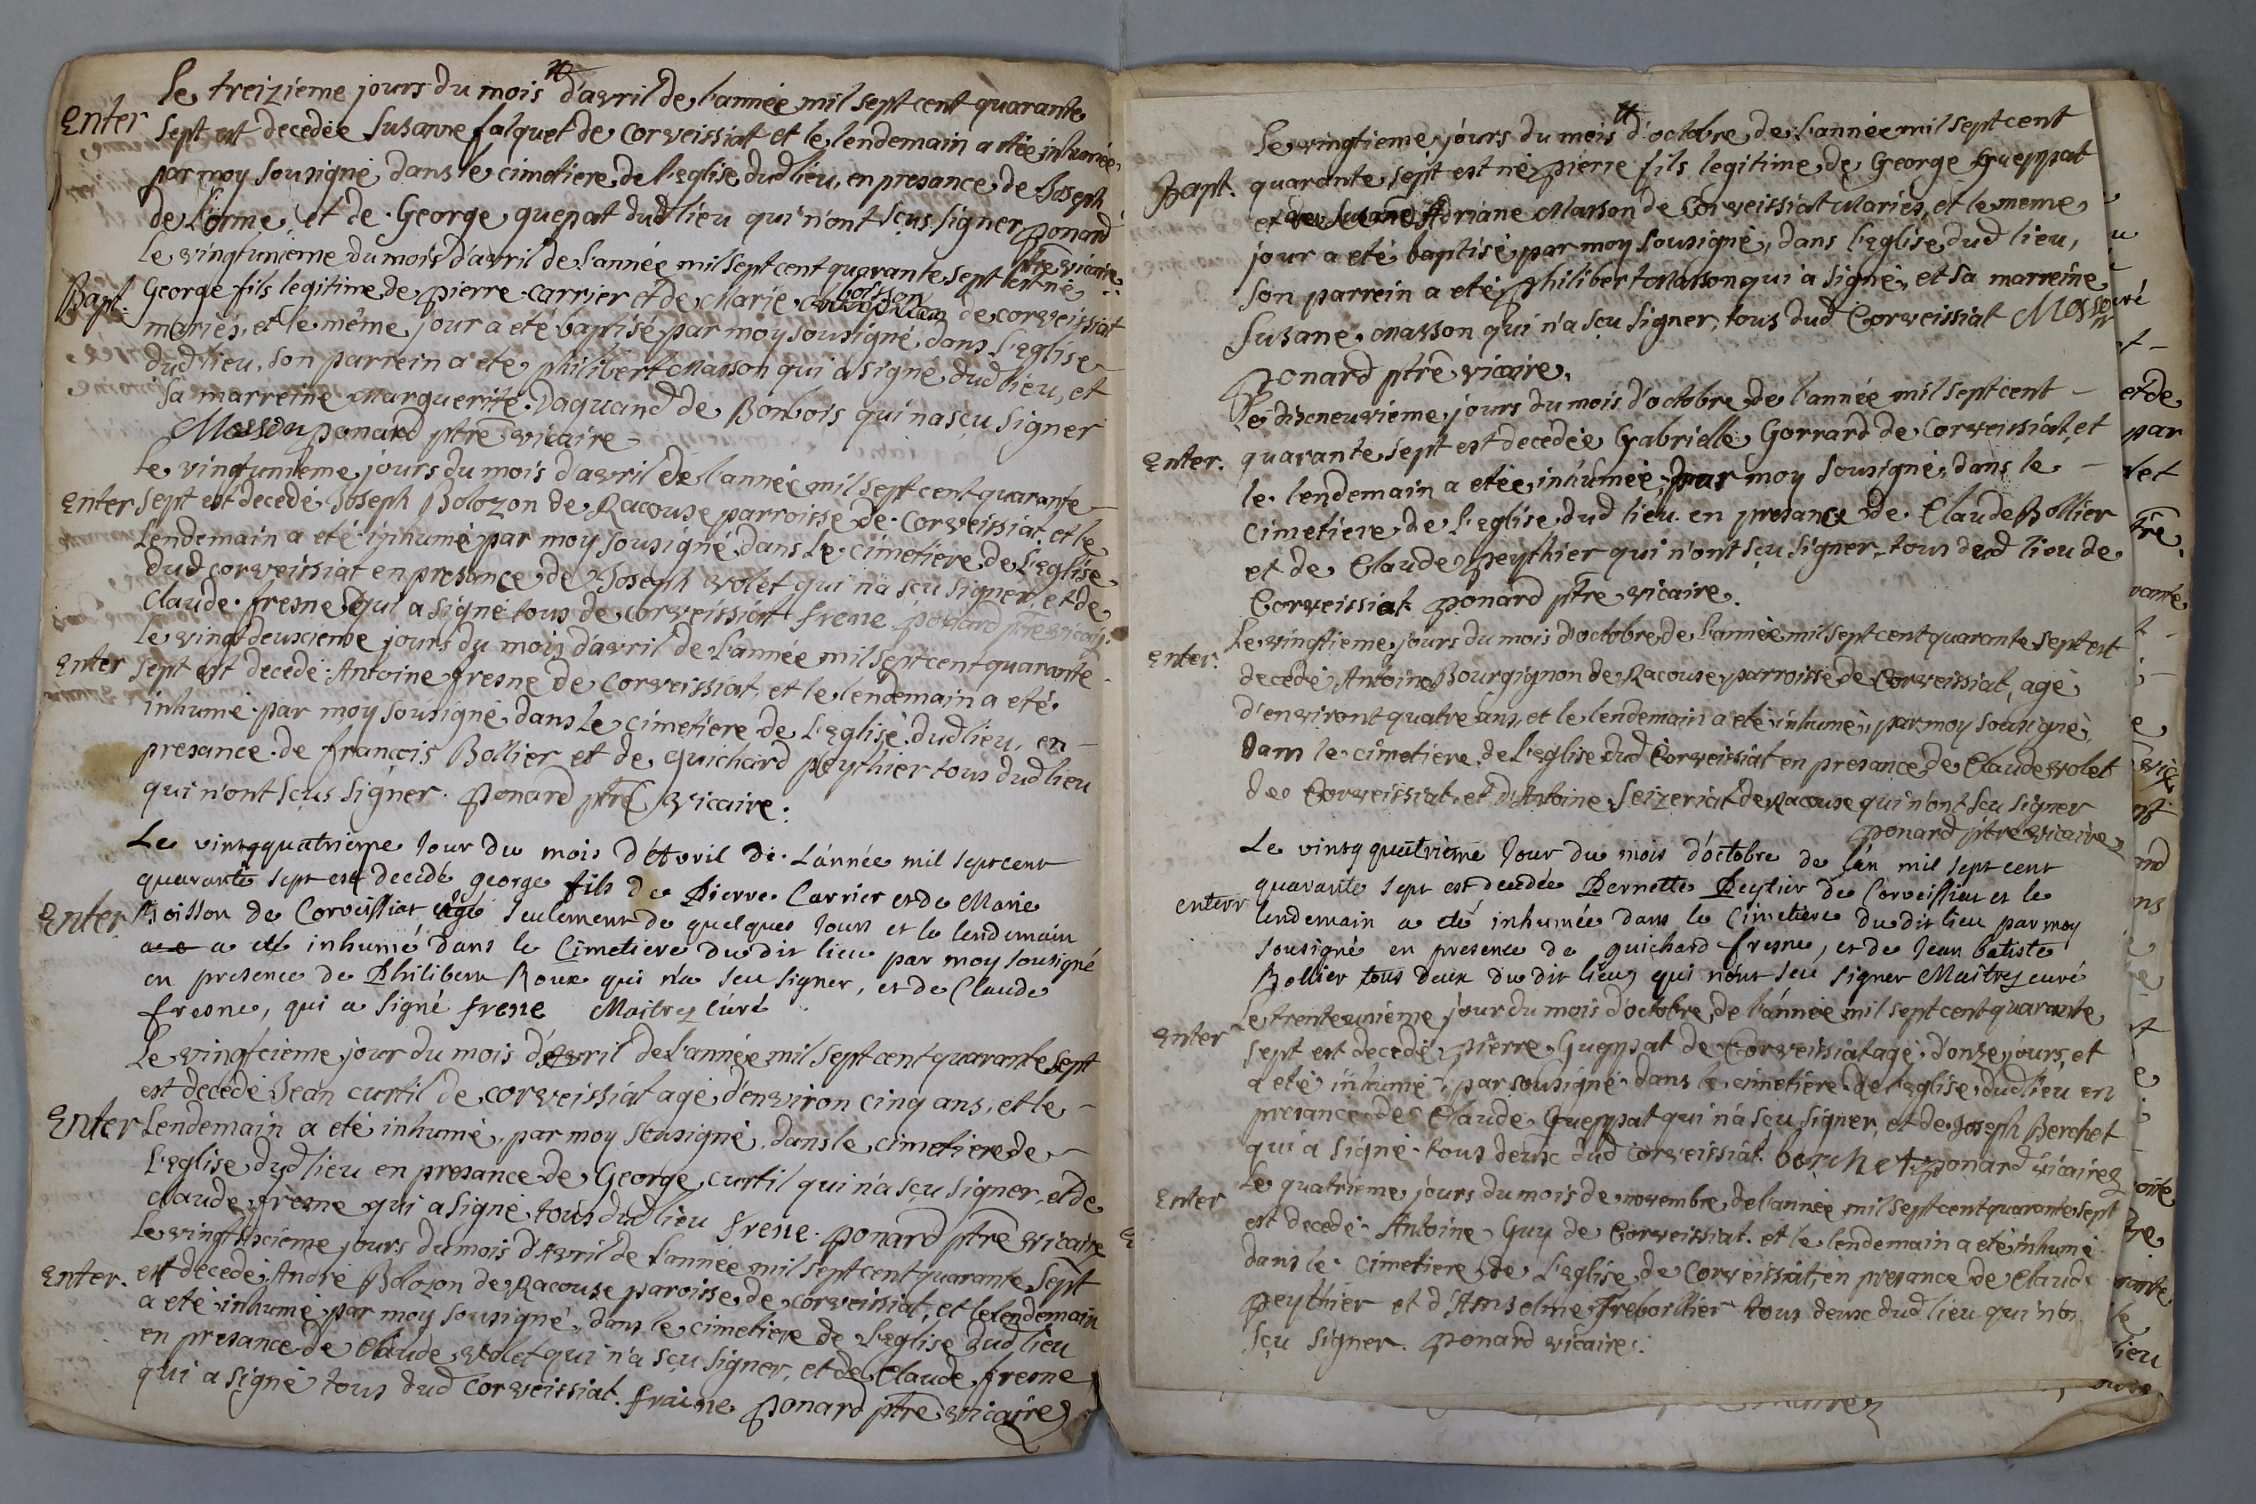 Le treizieme jours du mois d'avril de l'année mil sept cent quarante
Enter sept est decedée Susanne falquet de Corveissiat et le lendemain a etée inhumée
par moy sousigné dans le cimetiere de l'eglise dud lieu, en presance de Joseph
de l'orme, et de George quepat dud lieu qui n'ont sçus signer ponard
ptre vicaire
Le vingtunieme du mois d'avril de l'année mil sept cent quarante sept est né
Bapt. George fils legitime de pierre carrier et de Marie boisson de corveissiat
mariés, et le même jour a eté baptisé par moy sousigné dans l'Eglise
dud lieu, son parrein a eté philibert Masson qui a signé dud lieu, et
sa marreine Marguerite Daquand de Bonbois qui na sçu signer
Masson ponard ptre vicaire
Le vingtunieme jours du mois d'avril de l'année mil sept cent quarante
Enter sept est decedé Joseph Bolozon de Racouse parroisse de Corveissiat et le
Lendemain a eté inhumé par moy sousigné dans le cimetiere de l'eglise
dud corveissiat en presance de Joseph volet qui n'a sçu signer, et de
Claude fresne qui a signé tous de corveissiat frene ponard ptre vicaire
Le vingtdeuxieme jours du mois d'avril de l'année mil sept cent quarante
Enter sept est decedé Antoine fresne de Corveissiat, et le lendemain a eté
inhumé par moy sousigné dans le cimetiere de l'Eglise dud lieu, en
presance de françois Bollier et de Guichard peythier tous dud lieu
qui n'ont sçus signer. ponard ptre vicaire.
Le vingtquatrieme Jour du mois d'Avril de L'année mil sept cent
quarante sept est decédé george fils de Pierre Carrier et de Marie
Enter Boisson de Corveissiat agé seulement de quelques Jours et le lendemain
a eté inhumé dans le Cimetiere du dit lieu par moy sousigné
en presence de Philibert Roux qui n'a seu signer, et de Claude
fresne, qui a signé frene Maitrez Curé
Le vingtcieme jour du mois d'avril de l'année mil sept cent quarante sept
est decedé Jean curtil de corveissiat agé d'environ cinq ans, et le
Enter Lendemain a eté inhumé par moy sousigné dans le cimetiere de
l'Eglise dud lieu en presance de George curtil qui n'a sçu signer, et de
claude fresne qui a signé tous dud lieu frene. ponard ptre vicaire
Le vingtsixieme jours du mois d'Avril de l'année mil sept cent quarante sept
Enter. est decedé André Bolozon de Racouse paroisse de corveissiat, et le lendemain
a eté inhumé par moy sousigné, dans le cimetiere de l'Eglise dud lieu
en presance de Claude volet qui n'a sçu signer, et de Claude fresne
qui a signé tous dud Corveissiat. fraine ponard ptre vicaire
Le vingtieme jours du mois d'octobre de l'année mil sept cent
Bapt. quarante sept est né pierre fils legitime de George Gueppat
et Adriane Masson de Corveissiat Mariés, et le meme
jour a eté baptisé par moy sousigné, dans l'Eglise dud lieu,
Son parrein a eté philibert Masson qui a signé, et sa marreine
Susane Masson qui n'a sçu signer, tous dud Corveissiat Masson
ponard ptre vicaire.
Le dixneuvieme jours du mois d'octobre de l'année mil sept cent
Enter. quarante sept est decedée Gabrielle Gorrard de Corveissiat, et
le lendemain a etée inhumée par moy sousigné, dans le
Cimetiere de l'Eglise dud lieu en presance de Claude Bollier
et de Claude peythier qui n'ont sçu signer tous dud lieu de
Corveissiat ponard ptre vicaire.
Le vingtieme jours du mois d'octobre de l'année mil sept cent quarante sept est
Enter. decedé Antoine Bourgignon de Racouse parroisse de Corveissiat, agé
d'environt quatre ans, et le lendemain a eté inhumé, par moy sousigné
dans le cimetiere de l'Eglise dud Corveissiat en presance de Claude volet
de Corveissiat, et d'Antoine Seizeriat de Racouse qui n'ont sçu signer
ponard ptre vicaire
Le vingt quatrieme Jour du mois d'octobre de l'an mil sept cent
quarante sept est decedée Pernette Peytier de Corveissiat et le
enterr lendemain a eté inhumée dans le Cimetiere du dit lieu par moy
sousigné en presence de guichard fresne, et de Jean batiste
Bollier tous deux du dit lieu qui n'ont seu signer Maitrez curé
Le trenteunieme jour du mois d'octobre de l'année mil sept cent quarante
Enter sept est decedé pierre Gueppat de Corveissiat agé d'onze jours, et
a eté inhumé par sousigné dans le cimetiere de l'eglise dud lieu en
presance de Claude Gueppat qui n'a sçu signer, et de Joseph Berchet
qui a signé tous deux dud corveissiat. berchet ponard vicaire
Le quatrieme jours du mois de novembre de l'année mil sept cent quarante sept
Enter est decedé Antoine Guy de Corveissiat. et le lendemain a eté inhumé
dans le Cimetiere de l'Eglise de Corveissiat, en presance de Claude
peythier et d'Anselme Treboillier tous deux dud lieu qui n'on
sçu signer. ponard vicaire.